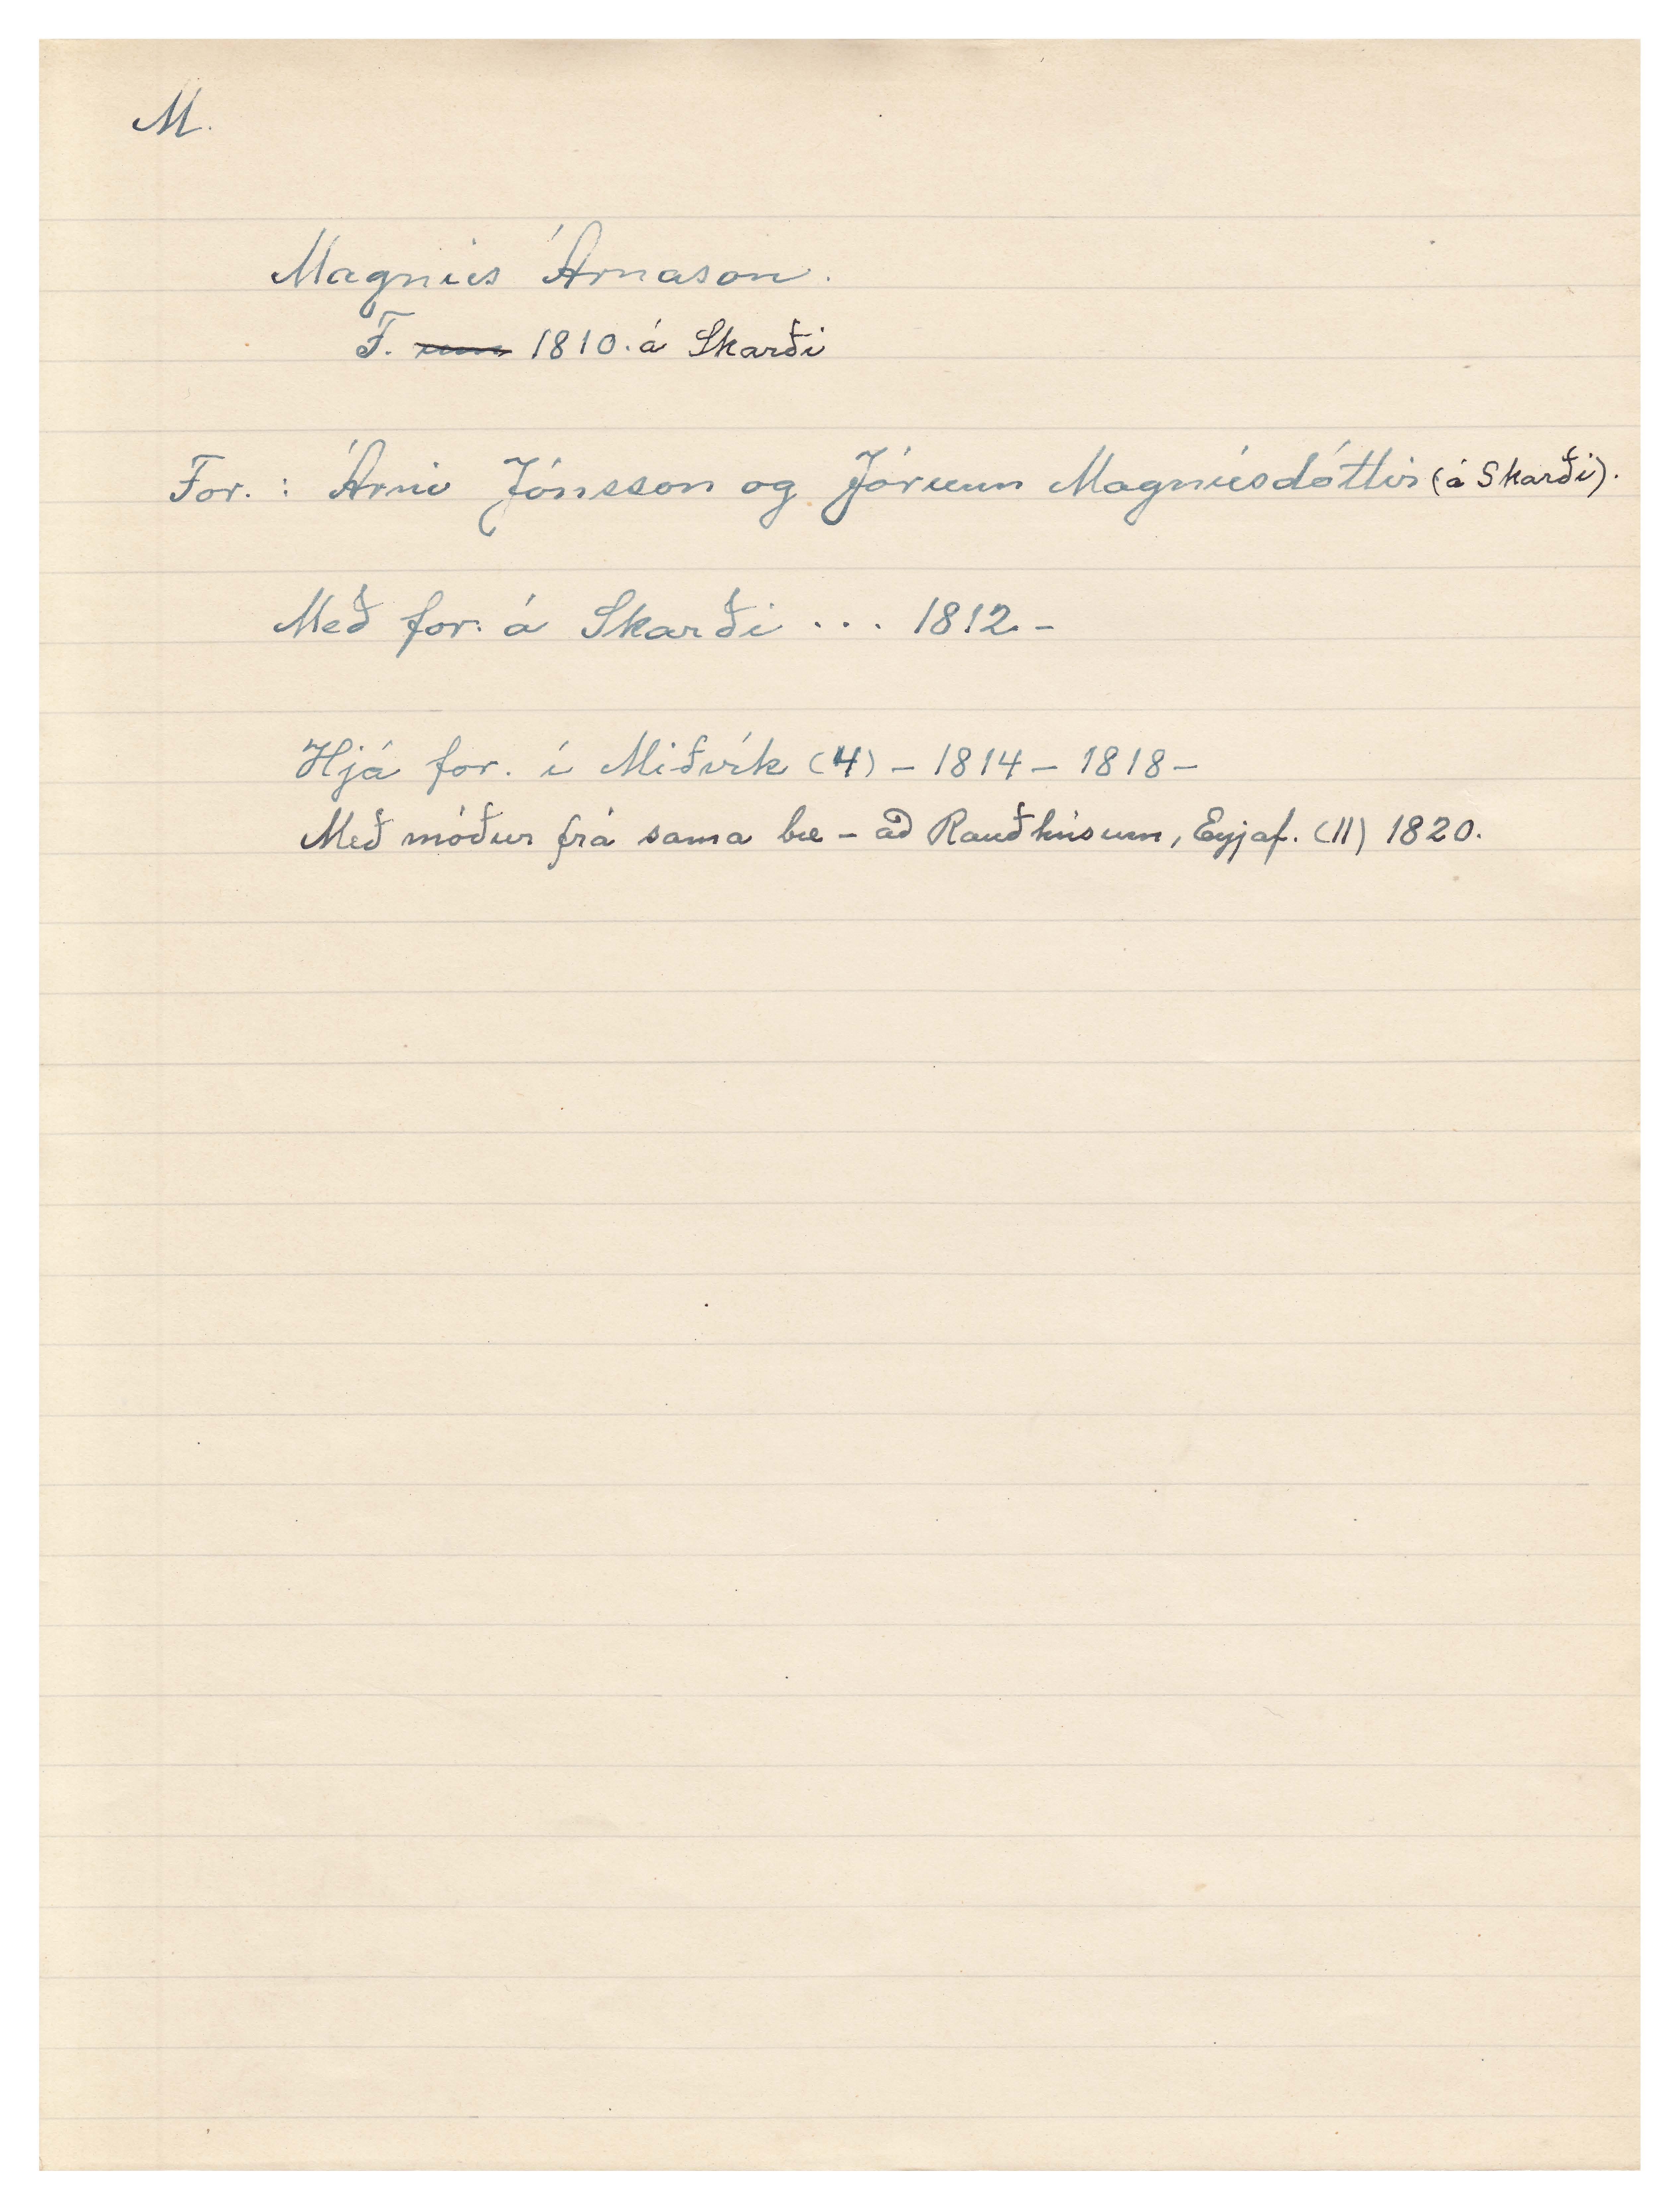 M.
Magnús Árnason.
F. 1810. á Skarði
For. : Árni Jónsson og Jórunn Magnúsdóttir (á Skarði).
Með for. á Skarði ... 1812 -
Hjá for. í Miðvík (4) - 1814 - 1818 -
Með móður frá sama bæ - að Rauðhúsum, Eyjaf. (11) 1820.